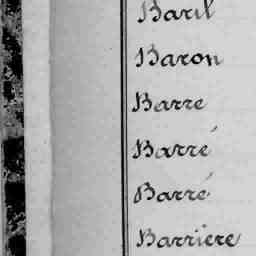 Baril
Baron
Barre
Barré
Barré
Barriere